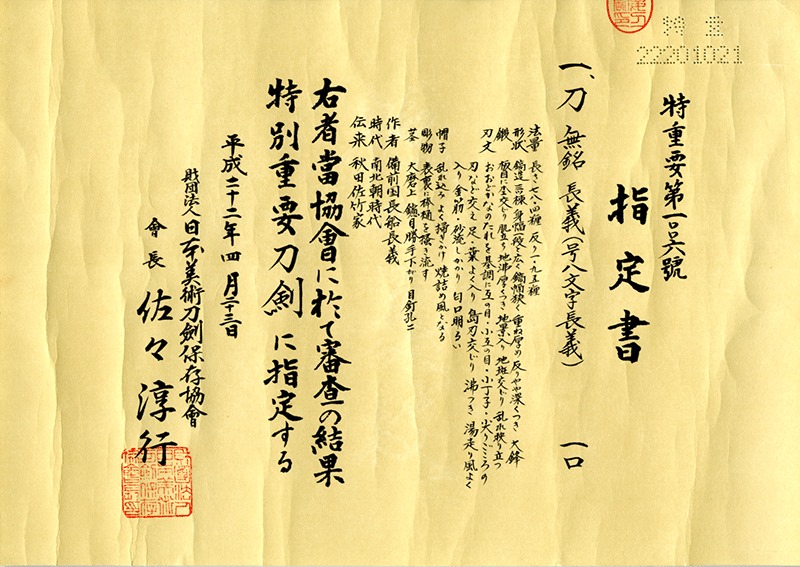 特重
22201021
特重要第一〇六號
指定書
一、刀 無銘 長義(号八文字長義) 一口
法量 長さ七八・四糎 反り一・九五糎
形状 鎬造 庵棟 身幅一段と広く 鎬幅狭く 重ね厚め 反りやや深くつき 大鋒
鍛 板目に杢交じり 肌立ち 地沸厚くつき 地景入り 地斑交じり 乱れ映り立つ
刃文 おおどかなのたれを基調に互の目・小互の目・小丁子・尖りごころの
刃など交え 足・葉よく入り 島刃交じり 沸つき 湯走り風よく
入り 金筋・砂流しかかり 匂口明るい
帽子 乱れ込み よく掃きかけ 焼詰め風となる
彫物 表裏に棒樋を掻き流す
茎 大磨上 鑢目勝手下がり 目釘孔二
作者 備前国長船長義
時代 南北朝時代
伝来 秋田佐竹家
右者當協會に於て審査の結果
特別重要刀剣に指定する
平成二十二年四月二十三日
財団法人日本美術刀剣保存協會
會長 佐々淳行